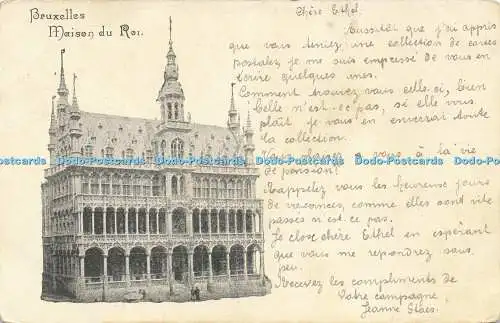 Bruxelles
Maison du Roi.
Chère Ethel.
Aussitôt que j'ai appris
que vous teniez une collection de cartes
postales je me suis empressé de vous en
écrire quelques unes.
Comment trouvez vous celle-ci, bien
belle n'est-ce pas, si elle vous
plaît je vous en enverrai toute
la collection.
à vous à la vie
de pension!
Rappelez vous les heureux jours
de vacances, comme elles sont vite
passés n'est ce pas.
Je close chère Ethel en espérant
que vous me repondrez sous
peu.
Recevez les compliments de
Votre compagne,
Jeanne Claes.
Dodo-Postcards Dodo-Postcards Dodo-Postcards Dodo-Postcards Dodo-Postcards